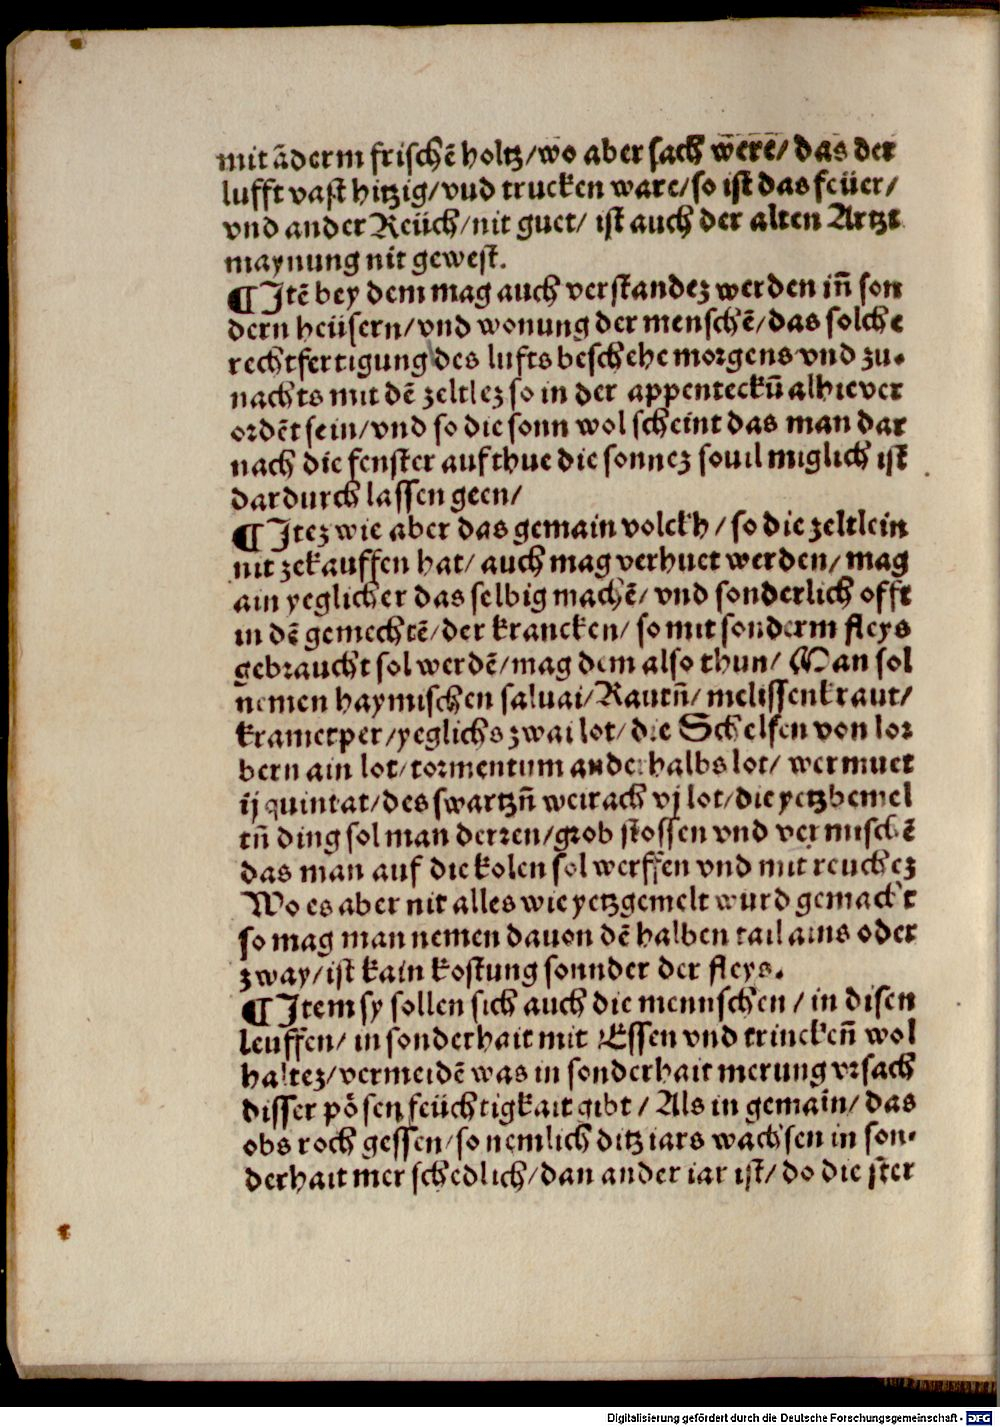 mit ãderm frischẽ holtz/wo aber sach were/ das der
lufft vast hitzig/vnd trucken ware/so ist das feüer/
vnd ander Reüch/nit guet/ ist auch der alten Artzt
maynung nit gewest.
¶Jtẽ bey dem mag auch verstandez werden iñ son
dern heüsern/vnd wonung der menschẽ/das solche
rechtfertigung des lufts beschehe morgens vnd zu-
nachts mit dẽ zeltlez so in der appenteckñ alhie ver
ordẽt sein/vnd so die sonn wol scheint das man dar
nach die fenster auf thue die sonnez souil miglich ist
dardurch lassen geen/
¶Jtez wie aber das gemain volckh/so die zeltlein
nit zekauffen hat/auch mag verhuet werden/mag
ain yeglicher das selbig machẽ/vnd sonderlich offt
in dẽ gemechtẽ/der krancken/so mit sonderm fleys
gebraucht sol werdẽ/mag dem also thun/Man sol
nemen haymischen saluai/Rautñ/melissenkraut/
krametper/yeglichs zwai lot/die Schelfen von lor
bern ain lot/tormentum anderhalbs lot/wermuet
ij quintat/des swartzñ weirach vj lot/die yetzbemel
tñ ding sol man derren/grob stossen vnd vermischẽ
das man auf die kolen sol werffen vnd mit reuchez
Wo es aber nit alles wie yetzgemelt wurd gemacht
so mag man nemen dauon dẽ halben tail ains oder
zway/ist kain kostung sonnder der fleys.
¶Jtem sy sollen sich auch die mennschen/in disen
leuffen/in sonderhait mit Essen vnd trinckeñ wol
haltez/vermeidẽ was in sonderhait merung vrsach
disser põsen feüchtigkait gibt/Als in gemain/das
obs roch gessen/so nemlich ditz iars wachsen in son-
derhait mer schedlich/dan ander iar ist/do die ster
Digitalisierung gefördert durch die Deutsche Forschungsgemeinschaft - DFG